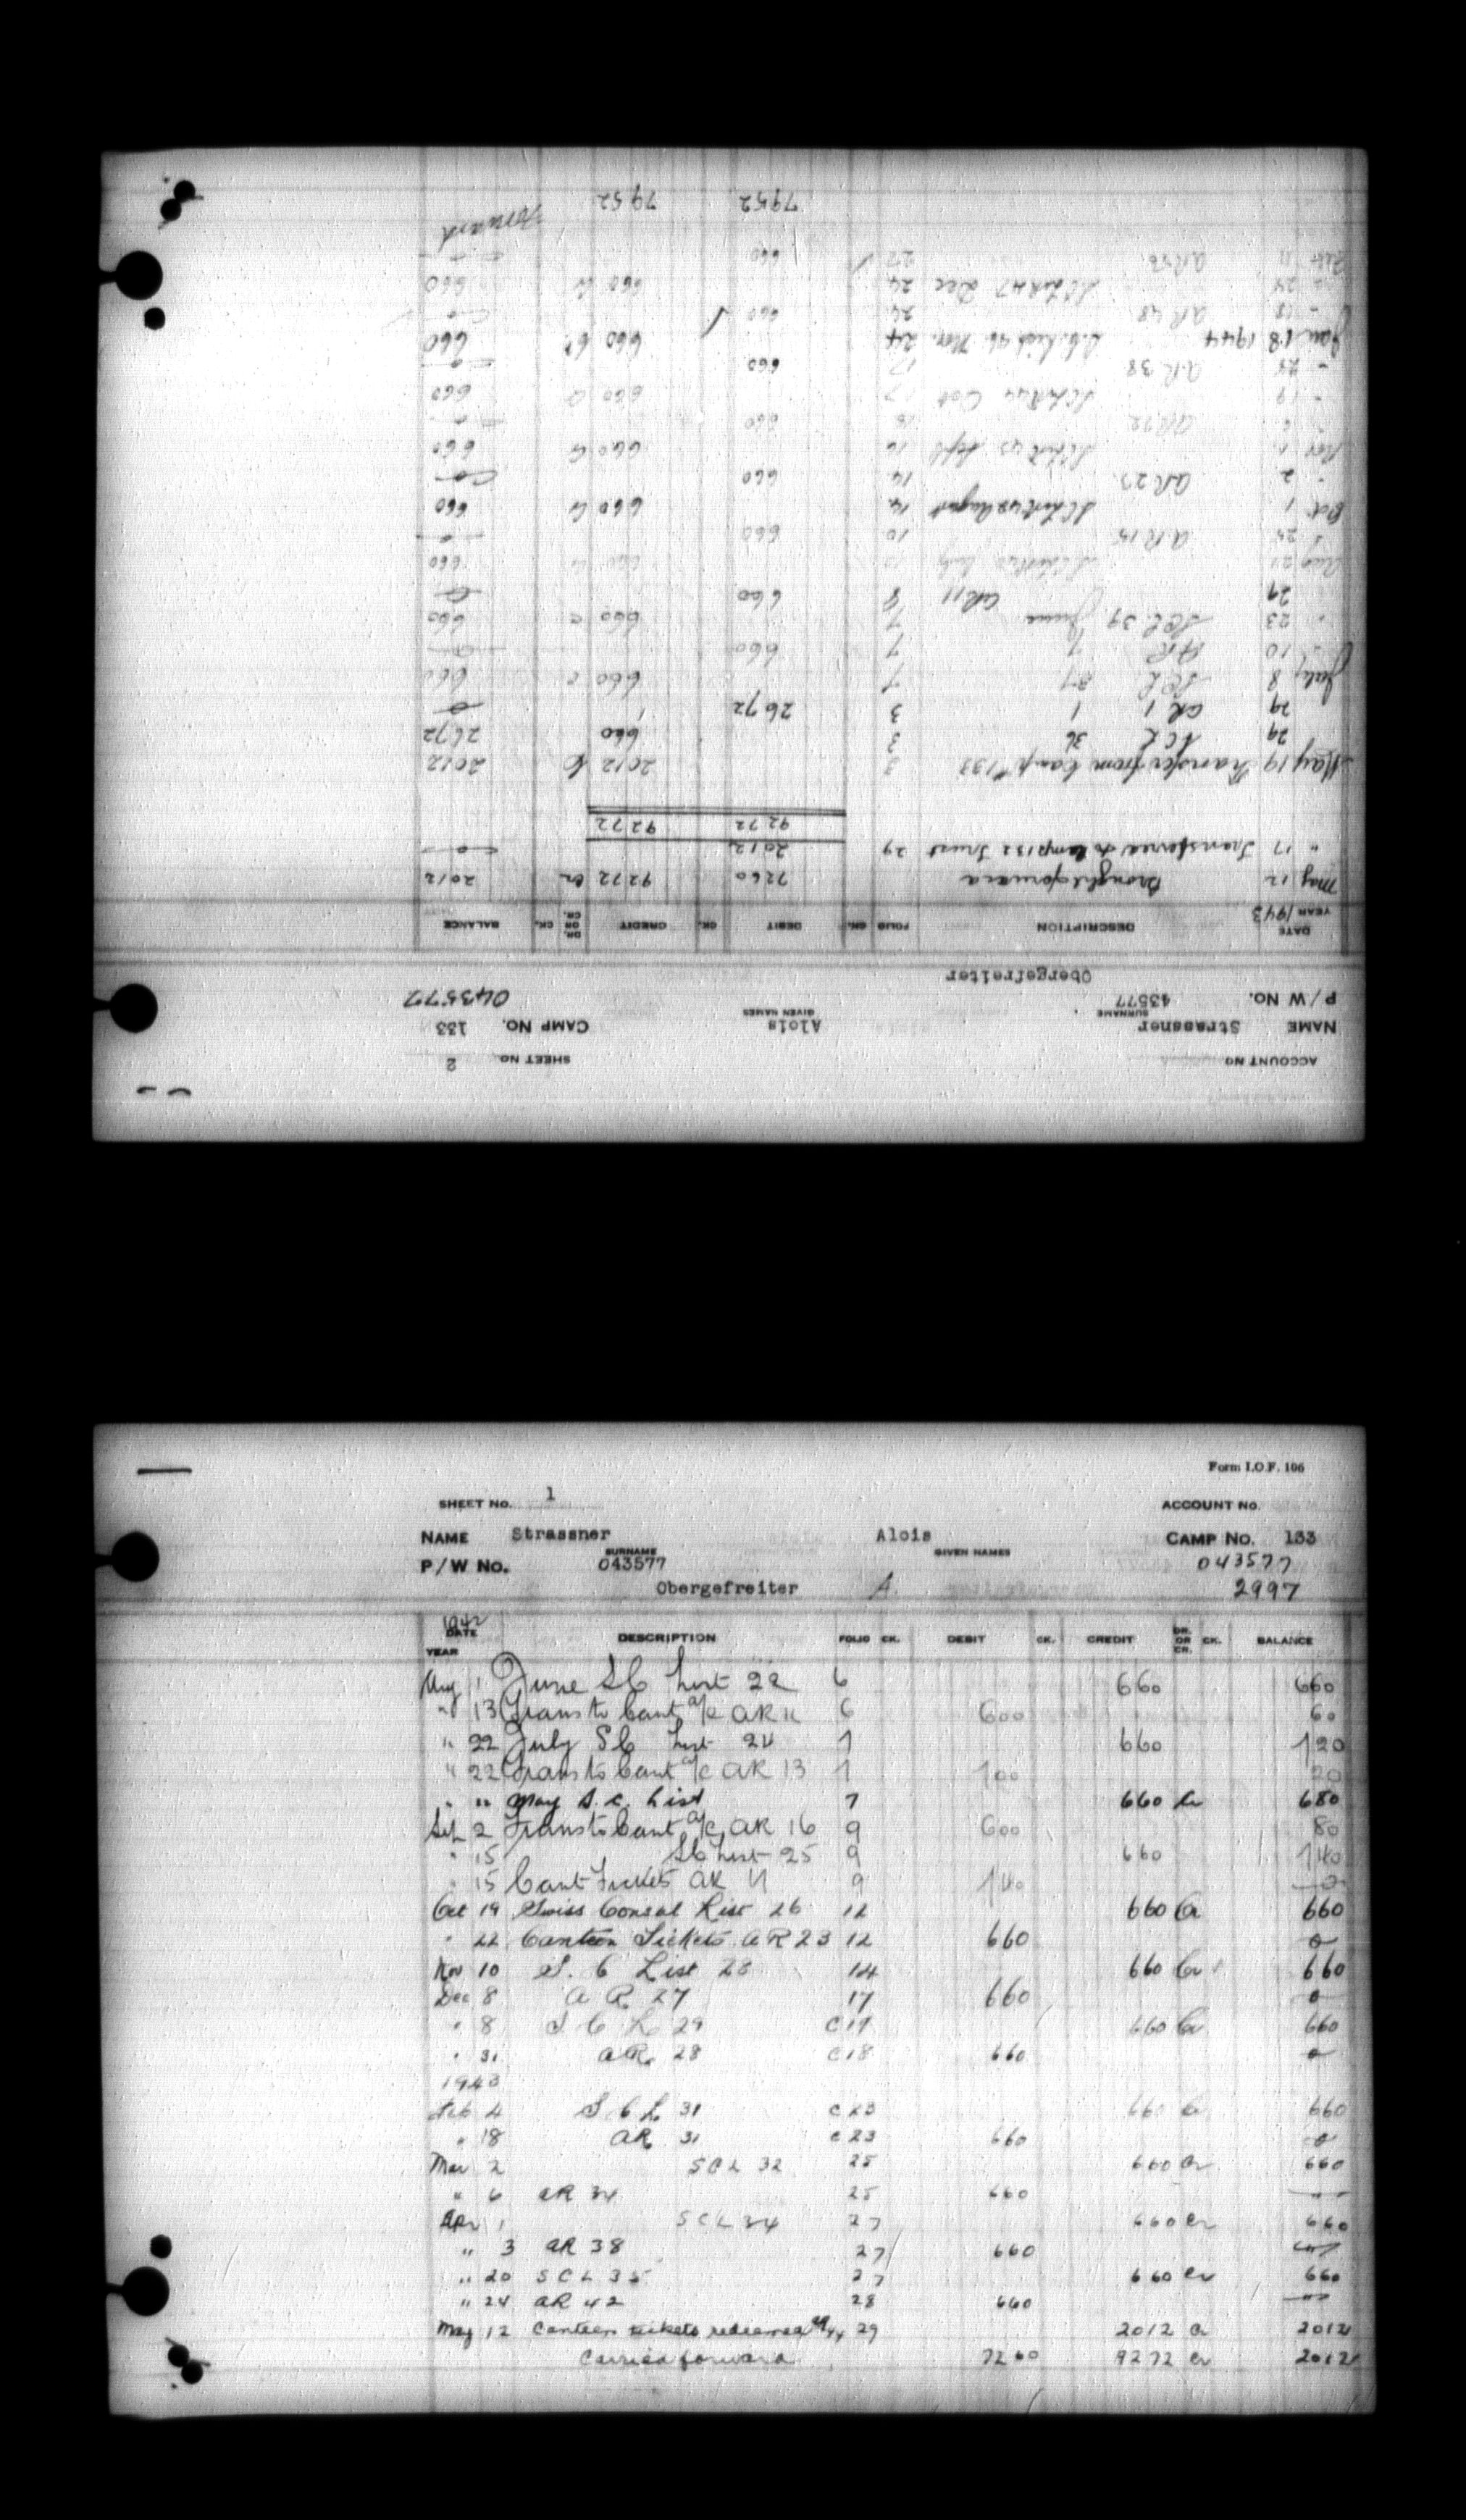 SHEET NO. 2
ACCOUNT NO
NAME Strassner Alois CAMP NO. 133
SURNAME GIVEN NAMES
P/W NO. 43577 043577
Obergefreiter
DATE DESCRIPTION FOLIO CK. DEBIT CK. CREDIT DR. OR CR. CK. BALANCE
YEAR 1943
May 12 Brought forward 7260 9272 Cr 2012
" 17 Transferred to Camp 132 Trust 29 2012 —0—
9272 9272
May 19 Transfer from Camp #133 3 2012 Cr 2012
29 SCL 36 3 660 2672
29 AR 1 1 3 2672 0
July 8 SCL 37 7 660 c 660
" 10 AR 7 7 660 —0—
" 23 SCL 39 June 7 660 c 660
29 AR 11 8 660 —0—
Aug 21 10 660 660
" 25 AR 15 10 660 —0—
Oct 1 SC List 42 August 14 660 Cr 660
" 2 AR 23 14 660 —0—
Nov 1 SC List 43 Sept 16 660 Cr 660
" 6 AR 32 16 660 —0—
" 19 SC List 44 Oct 17 660 Cr 660
" 28 AR 38 17 660 —0—
Jan 18 1944 S.C. List 46 Nov. 24 660 Cr 660
" 18 AR 48 24 660 —0—
" 24 SC List 47 Dec 24 660 Cr 660
Feb 11 AR 56 27 660 —0—
Forward
7952 7952
Form I.O.F. 106
SHEET NO. 1 ACCOUNT NO.
NAME Strassner Alois CAMP NO. 133
SURNAME GIVEN NAMES
P/W NO. 043577 043577
Obergefreiter A. 2997
1942
DATE DESCRIPTION FOLIO CK. DEBIT CK. CREDIT DR. OR CR. CK. BALANCE
YEAR
Aug 1 June SC List 22 6 660 660
" 13 Trans to Cant a/c AR 11 6 600 60
" 22 July SC List 24 7 660 720
" 22 Trans to Cant a/c AR 13 7 700 20
" " May S.C. List 7 660 Cr 680
Sep 2 Trans to Cant a/c AR 16 9 600 80
" 15 SC List 25 9 660 740
" 15 Cant Tickets AR 17 9 740 —0—
Oct 19 Swiss Consul List 26 12 660 Cr 660
" 22 Canteen Tickets AR 23 12 660 0
Nov 10 S. C List 28 14 660 Cr 660
Dec 8 AR 27 17 660 0
" 8 S C L 29 C17 660 Cr 660
" 31 AR 28 C18 660 0
1943
Feb 4 S C L 31 C23 660 Cr 660
" 18 AR 31 C23 660 0
Mar 2 SCL 32 25 660 Cr 660
" 6 AR 34 25 660 — " —
Apr 1 SCL 34 27 660 Cr 660
" 3 AR 38 27 660 — " —
" 20 SCL 35 27 660 Cr 660
" 24 AR 42 28 660 — " —
May 12 Canteen tickets redeemed AR 44 29 2012 Cr 2012
Carried forward 7260 9272 Cr 2012